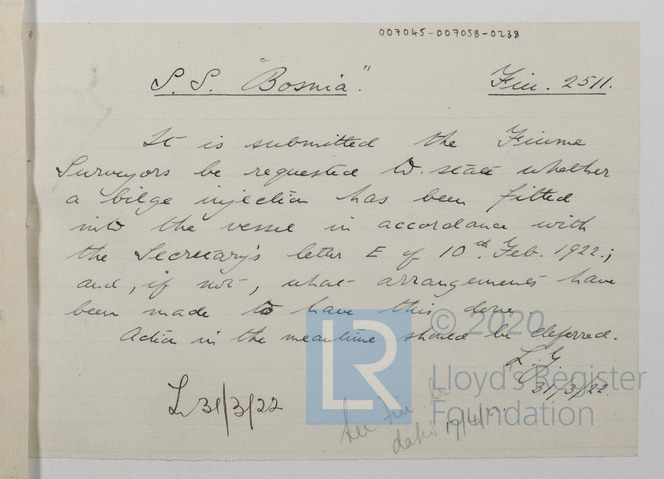 007045-007058-0238
S.S. "Bosnia". Fiu. 2511.
It is submitted the Fiume
Surveyors be requested to state whether
a bilge injection has been fitted
into the vessel in accordance with
the Secretary's letter E of 10th Feb. 1922;
and, if not, what arrangements have
been made to have this done.
Action in the meantime should be deferred.
31/3/22.
31/3/22
LR
© 2020
Lloyd's Register
Foundation